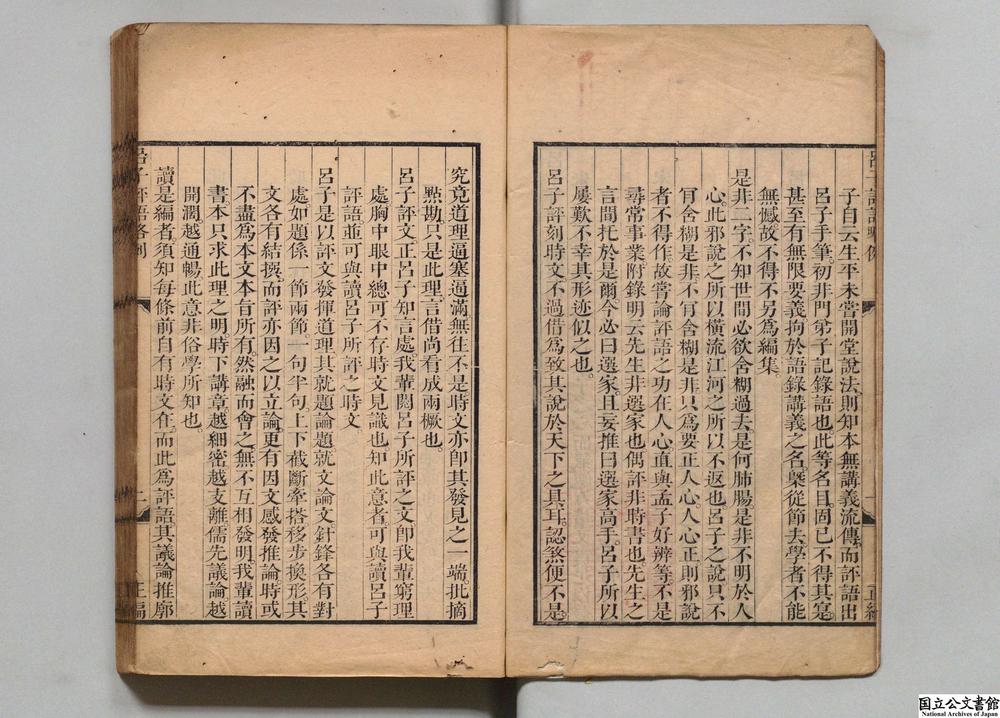 子自云生平未嘗開堂說法則知本無講義流傳而評語出
呂子手筆初非門弟子記錄語也此等名目固已不得其寔
甚至有無限要義拘於語錄講義之名槩從節去學者不能
無憾故不得不另為編集
是非二字不知世間必欲含糊過去是何肺腸是非不明於人
心此邪說之所以橫流江河之所以不返也呂子之說只不
肎含糊是非不肎含糊是非只為要正人心人心正則邪說
者不得作故嘗論評語之功在人心直與孟子好辨等不是
尋常事業附錄明云先生非選家也偶評非時書也先生之
言間托於是爾今必曰選家且妄推曰選家高手呂子所以
屢歎不幸其形迹似之也
呂子評刻時文不過借為致其說於天下之具耳認煞便不是
究竟道理逼塞逼滿無往不是時文亦卽其發見之一端批摘
㸃勘只是此理言借尚看成兩橛也
呂子評文正呂子知言處我輩閱呂子所評之文卽我輩窮理
處胸中眼中總可不存時文見識也知此意者可與讀呂子
評語並可與讀呂子所評之時文
呂子是以評文發揮道理其就題論題就文論文針鋒各有對
處如題係一節兩節一句半句上下截斷牽搭移步換形其
文各有結撰而評亦因之以立論更有因文感發推論時或
不盡為本文本旨所有然融而會之無不互相發明我輩讀
書本只求此理之明時下講章越細密越支離儒先議論越
開濶越通暢此意非俗學所知也
讀是編者須知每條前自有時文在而此為評語其議論推廓
呂子評語 略例
正編
国立公文書館
National Archives of Japan